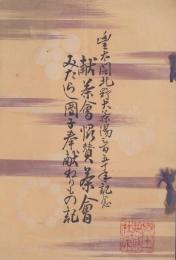 豊太閤北野大茶湯三百五十年記念
献茶會協賛茶會
みたらし團子奉献ねりもの記